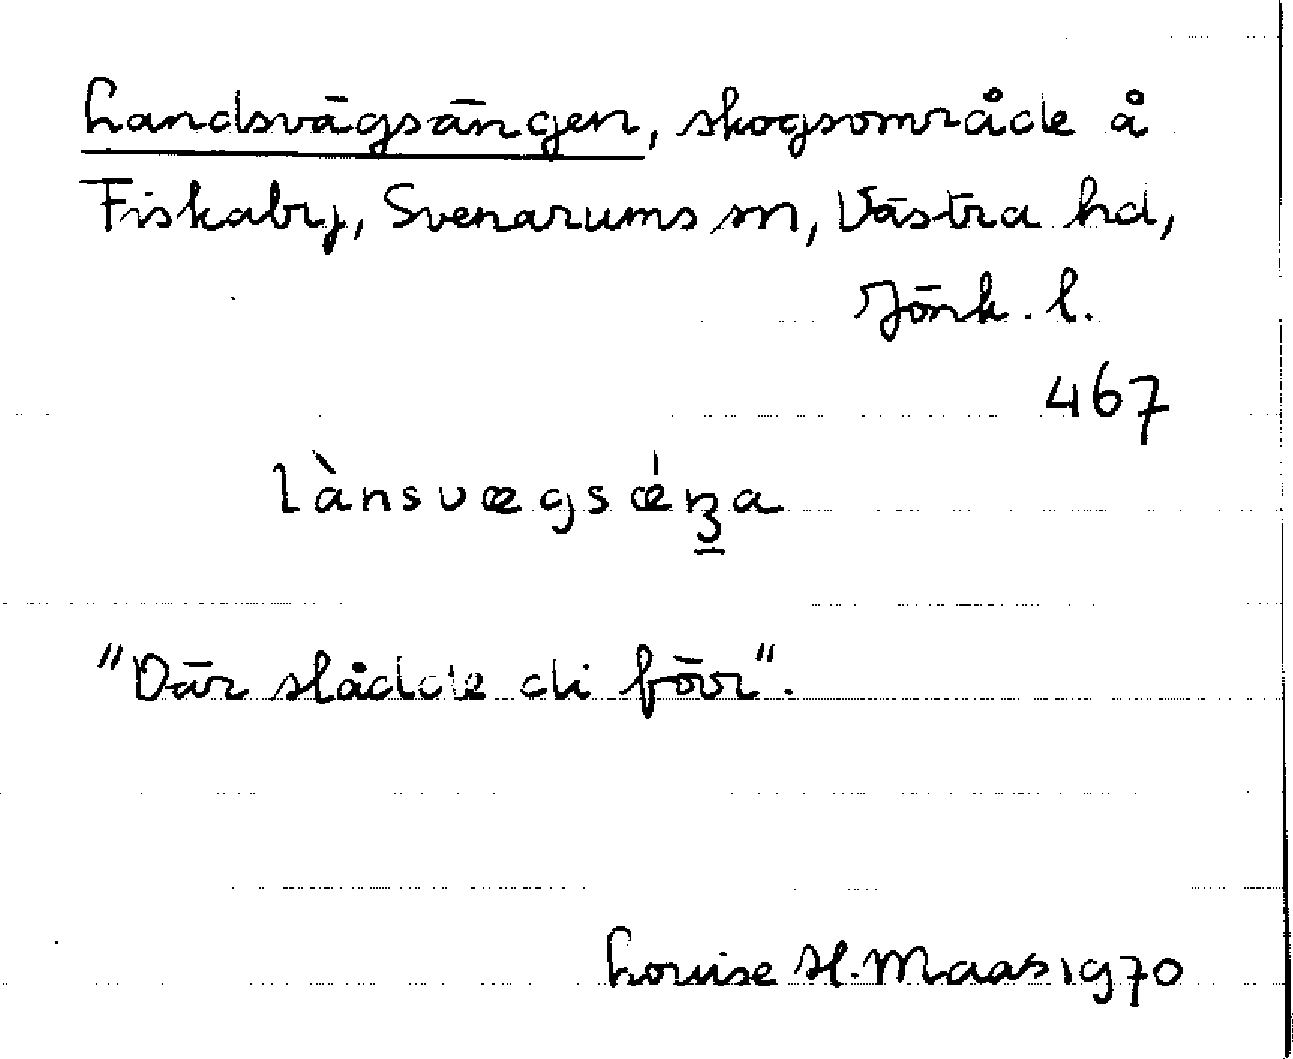 Landsvägsängen, skogsområde å
Fiskaby, Svenarums sn, Västra hd,
Jönk. l.
467
lànsvægsǽŋ̱a
"Där slådde di förr".
Louise H. Maas 1970